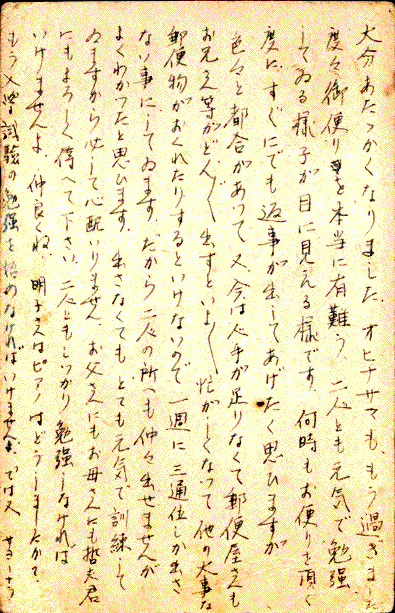 大分あたゝかくなりました、オヒナサマも、もう過ぎました
度々御便りを本当に有難う、二人とも元気で勉強
してゐる様子が目に見える様です、何時もお便りを頂く
度にすぐにでも返事が出してあげたく思ひますが
色々と都合があつて又、今は人手が足りなくて郵便屋さんも
お兄さん等がどん／＼出すといよ／＼忙がしくなつて他の大事な
郵便物がおくれたりするといけないので一週に三通位しか出さ
ない事にしてゐます、だから二人の所へも仲々出せませんが
よくわかつたと思ひます、出さなくても、とても元気で訓練して
ゐますから決して心配いりません、お父さんにもお母さんにも哲夫君
にもよろしく傳へて下さい、二人ともしつかり勉強しなければ
いけませんよ 仲良くね、明子さんはピアノはどうしましたかで、
もう入学試験の勉強を始めなければいけませんよ、では又 サヨーナラ